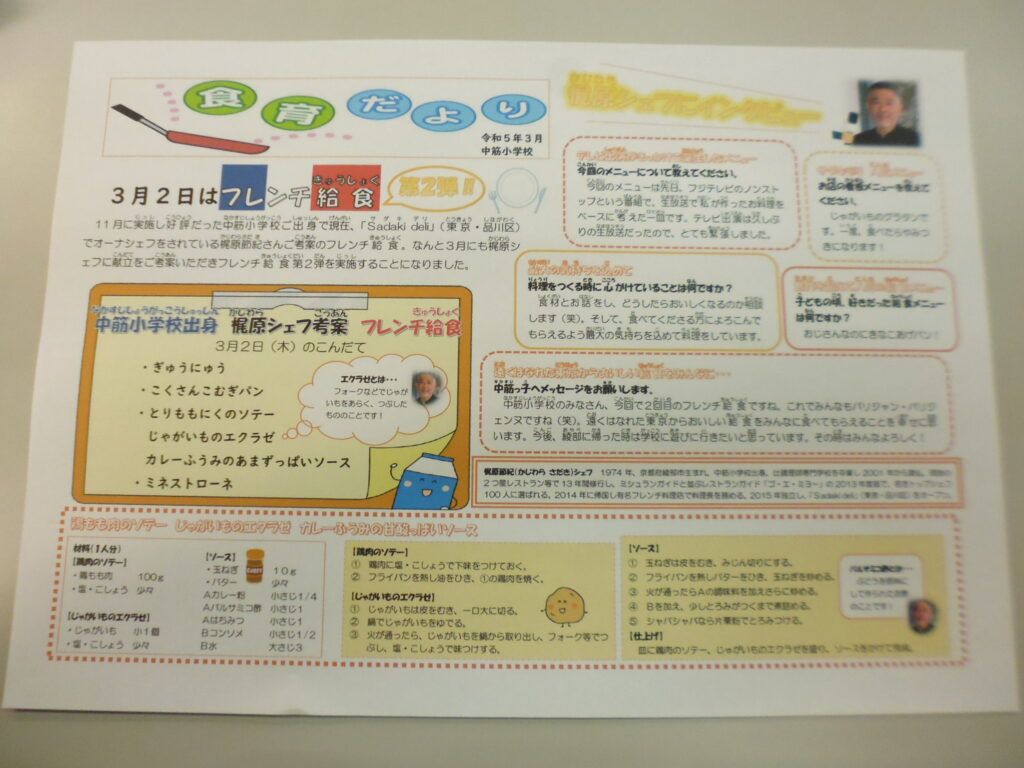 食育だより
令和5年3月
中筋小学校
3月2日はフレンチ給食 第2弾!!
11月に実施し好評だった中筋小学校ご出身で現在、「Sadaki deli」(東京・品川区)
でオーナシェフをされている梶原節紀さんご考案のフレンチ給食。なんと3月にも梶原シ
ェフに献立をご考案いただきフレンチ給食第2弾を実施することになりました。
中筋小学校出身 梶原シェフ考案 フレンチ給食
3月2日(木)のこんだて
・ぎゅうにゅう
・こくさんこむぎパン
・とりももにくのソテー
じゃがいものエクラゼ
カレーふうみのあまずっぱいソース
・ミネストローネ
エクラゼとは・・・
フォークなどでじゃが
いもをあらく、つぶした
もののことです!
梶原シェフにインタビュー
今回のメニューについて教えてください。
今回のメニューは先日、フジテレビのノンス
トップという番組で、生放送で私が作ったお料理を
ベースに考えた一皿です。テレビ出演は久しぶ
りの生放送だったので、とても緊張しました。
お店の看板メニューを教えて
ください。
じゃがいものグラタンで
す。一度、食べたらやみつ
きになります!
料理をつくる時に心がけていることは何ですか?
食材とお話をし、どうしたらおいしくなるのか相談
します(笑)。そして、食べてくださる方によろこんで
もらえるよう最大の気持ちを込めて料理をしています。
子どもの頃、好きだった給食メニュー
は何ですか?
おじさんなのにきなこあげパン!
中筋っ子へメッセージをお願いします。
中筋小学校のみなさん、今回で2回目のフレンチ給食ですね。これでみんなもパリジャン・パリジ
ェンヌですね(笑)。遠くはなれた東京からおいしい給食をみんなに食べてもらえることを幸せに思
います。今後、綾部に帰った時は学校に遊びに行きたいと思っています。その時はみんなよろしく!
梶原節紀(かじわら さだき)シェフ 1974年、京都府綾部市生まれ、中筋小学校出身。
2つ星レストラン等で13年間修行し、ミシュランガイドと並ぶレストランガイド「ゴ・エ・ミヨー」の2013年度版で、
100人に選ばれる。2014年に帰国し有名フレンチ料理店で料理長を務める。2015年独立し、「Sadaki deli」(東京・品川区)をオープン。
鶏もも肉のソテー じゃがいものエクラゼ カレーふうみの甘酸っぱいソース
材料(1人分)
【鶏肉のソテー】
・鶏もも肉 100g
・塩・こしょう 少々
【じゃがいものエクラゼ】
・じゃがいも 小1個
・塩・こしょう 少々
【ソース】
・玉ねぎ 10g
・バター 少々
Aカレー粉 小さじ1/4
Aバルサミコ酢 小さじ1
Aはちみつ 小さじ1
Bコンソメ 小さじ1/2
B水 大さじ3
【鶏肉のソテー】
① 鶏肉に塩・こしょうで下味をつけておく。
② フライパンを熱し油をひき、①の鶏肉を焼く。
【じゃがいものエクラゼ】
① じゃがいもは皮をむき、一口大に切る。
② 鍋でじゃがいもをゆでる。
③ 火が通ったら、じゃがいもを鍋から取り出し、フォーク等でつ
ぶし、塩・こしょうで味つけする。
【ソース】
① 玉ねぎは皮をむき、みじん切りにする。
② フライパンを熱しバターをひき、玉ねぎを炒める。
③ 火が通ったらAの調味料を加えさらに炒める。
④ Bを加え、少しとろみがつくまで煮詰める。
⑤ シャバシャバなら片栗粉でとろみつける。
【仕上げ】
皿に鶏肉のソテー、じゃがいものエクラゼを盛り、ソースをかけて完成。
バルサミコ酢とは・・・
ぶどうを原料に
して作られた酢
のことです!